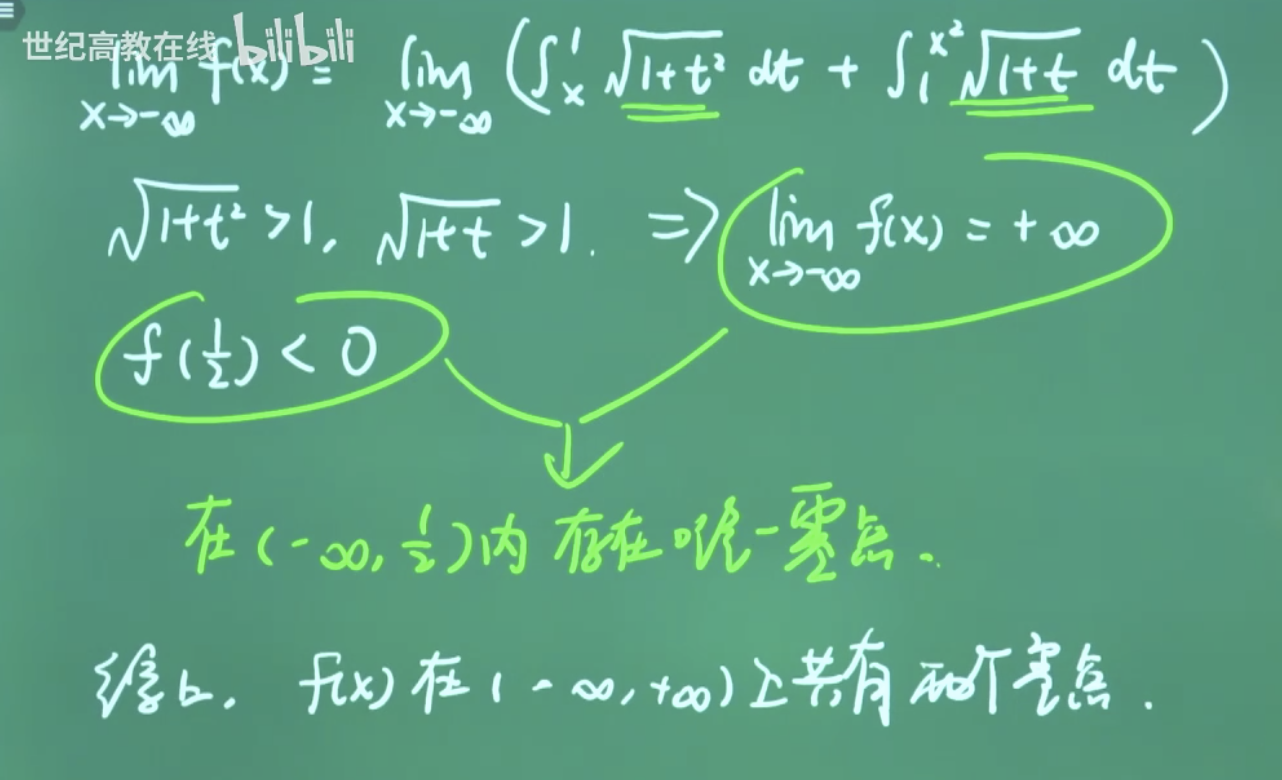 世纪高教在线 bilibili
lim f(x) = lim (∫ₓ¹ √(1+t²) dt + ∫₁^(x²) √(1+t) dt)
x→-∞ x→-∞
√(1+t²) >1, √(1+t) >1. ⇒ lim f(x) = +∞
x→-∞
f(1/2) < 0
在(-∞, 1/2)内存在唯一零点.
综上, f(x)在(-∞,+∞)上共有两个零点.